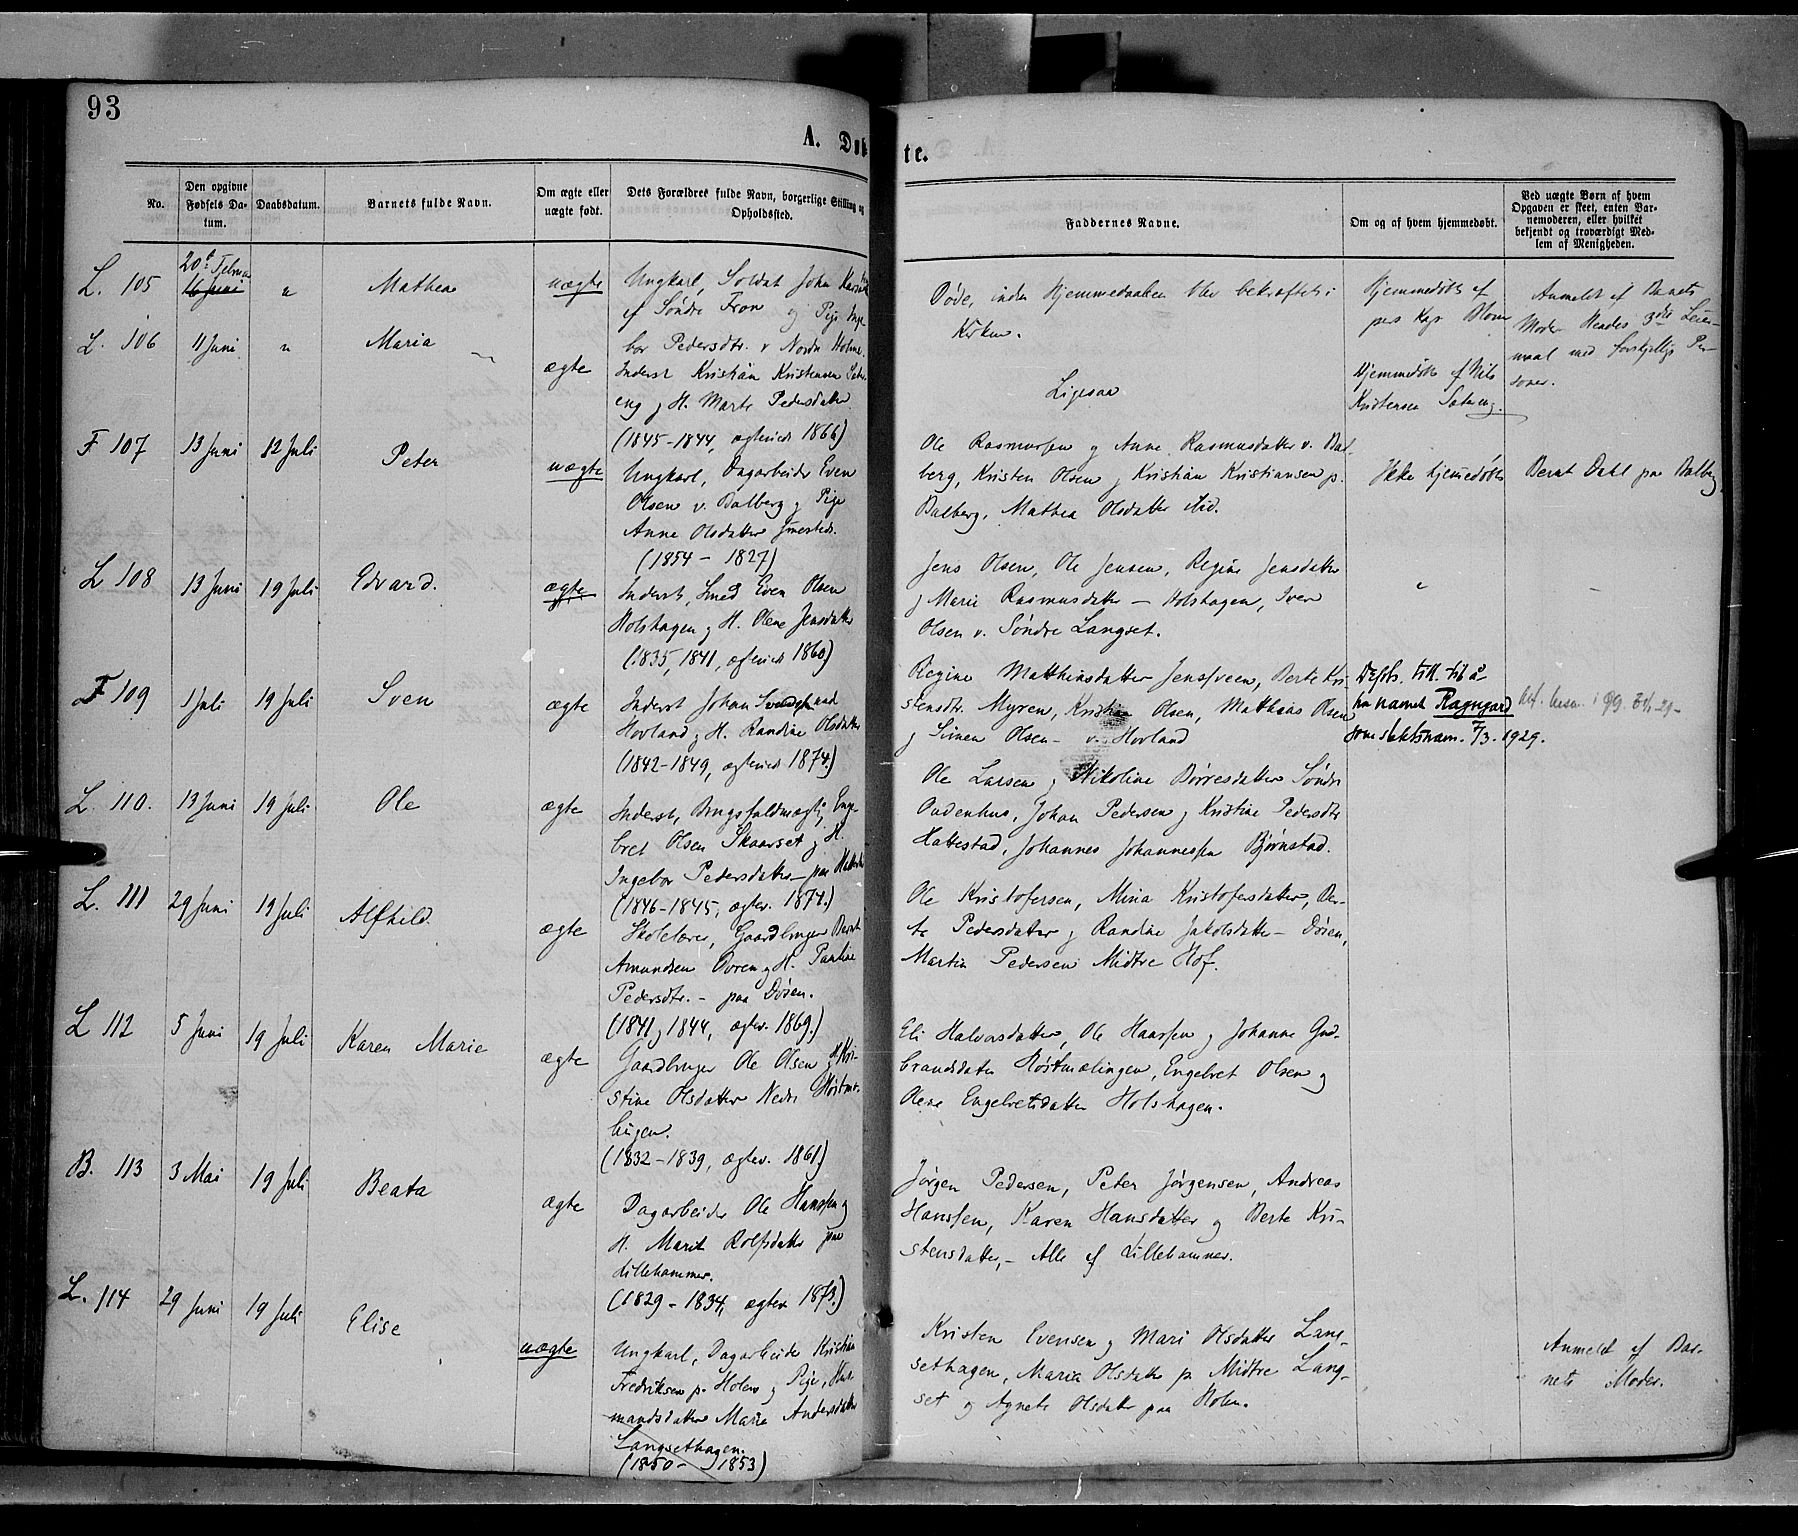 93
A. Døb
te.
No.
Den opgivne Fødsels Datum.
Daabsdatum.
Barnets fulde Navn.
Om ægte eller uægte født.
Dets Forældres fulde Navn, borgerlige Stilling og Opholdssted.
Faddernes Navne.
Om og af hvem hjemmedøbt.
Ved uægte Børn af hvem Opgaven er skeet, enten Barnemoderen, eller hvilket bekjendt og troværdigt Medlem af Menigheden.
L. 105
20de Februar
16 Juni
"
Mathea
uægte
Ungkarl, Soldat Johan
af Søndre Fron og Pige Inge-
bor Pedersdtr. v Nordre Holme.
Døde, inden Hjemmedaaben blev bekræftet i
Kirken.
Hjemmedøbt af
pers Kap Blom
Anmeldt af Barnets
Moder Hendes 3die Leier-
maal med forskjellige Per-
soner.
L. 106
11 Juni
"
Maria
ægte
Inderst Kristian Kristensen Sæter-
eng og H. Marte Pedersdatter
(1845-1844, ægteviet 1866)
Ligesaa
Hjemmedøbt af Nils
Kristensen Sætereng.
F 107
13 Juni
12 Juli
Peter
uægte
Ungkarl, Dagarbeider Even
Olsen v. Balberg og Pige
Anne Olsdatter Jmsteds.
(1854 - 1827)
Ole Rasmussen og Anne Rasmusdatter v. Bal-
berg, Kristen Olsen og Kristian Kristiansen p.
Balberg, Mathea Olsdatter ibid.
Ikke hjemmedøbt
Bernt Dahl paa Balberg
L 108
13 Juni
19 Juli
Edvard.
ægte
Inderst, Smed Even Olsen
Holshagen og H. Olene Jensdatter
(1835, 1841, ægteviet 1860)
Jens Olsen, Ole Jensen, Regine Jensdatter
og Marie Rasmusdatter - Holshagen, Iver
Olsen v. Søndre Langset.
"
F 109
1 Juli
19 Juli
Sven
ægte
Inderst Johan
Hovland og H. Randine Olsdatter
(1842-1849, ægteviet 1874.)
Regine Matthiasdatter Jenssveen, Berte Kri-
stensdtr. Myren, Kristian Olsen, Mathias Olsen
og Simen Olsen - v. Hovland
till. til å
ta namnet Ragngard
som slektsnavn. 7/3. 1929.
L. 110.
13 Juni
19 Juli
Ole
ægte
Inderst, Brugsfuldmægtig Enge-
bret Olsen Skaarset og H.
Ingebor Pedersdatter - paa
(1846-1845, ægtev. 1874.)
Ole Larsen og Nikoline Børresdatter Søndre
Oudenhus, Johan Pedersen og Kristine Pedersdtr
Hattestad, Johannes Johannessen Bjørnstad.
L. 111
29 Juni
19 Juli
Alfhild.
ægte
Skolelærer, Gaardbruger Bernt
Amundsen Døren og H. Pauline
Pedersdtr. - paa Døsen.
(1841 og 1844, ægtev. 1869.)
Ole Kristofersen, Mina Kristofersdatter, Ber-
te Pedersdatter og Randine Jakobsdatter - Døsen,
Martin Pedersen Midtre Hof.
L 112
5 Juni
19 Juli
Karen Marie
ægte
Gaardbruger Ole Olsen og H. Kri-
stine Olsdatter Nedre Høistmæ-
lingen.
(1832-1839, ægtev. 1861.)
Eli Halvorsdatter, Ole Hanssen og Johanne Gud-
brandsdatter Høistmælingen, Engebret Olsen og
Olene Engebretsdatter Holshagen.
B. 113
3 Mai
19 Juli
Beata
ægte
Dagarbeider Ole Hanssen og
H. Marit Rolfsdatter paa
Lillehammer.
(1829 - 1834, ægtev 1873.)
Jørgen Pedersen, Peter Jørgensen, Andreas
Hanssen, Karen Hansdatter og Berte Kri-
stensdatter, - Alle af Lillehammer.
L. 114
29 Juni
19 Juli
Elise
uægte
Ungkarl, Dagarbeider Kristian
Fredriksen p. Holen og Pige, Hus-
mandsdatter Maria Andersdatter
Langsethagen.
(1850 - 1853)
Kristen Evensen og Mari Olsdatter Lang-
sethagen, Maria Olsdatter p. Midtre Lang-
set og Agnete Olsdatter paa Holen.
Anmeldt af Bar-
nets Moder.